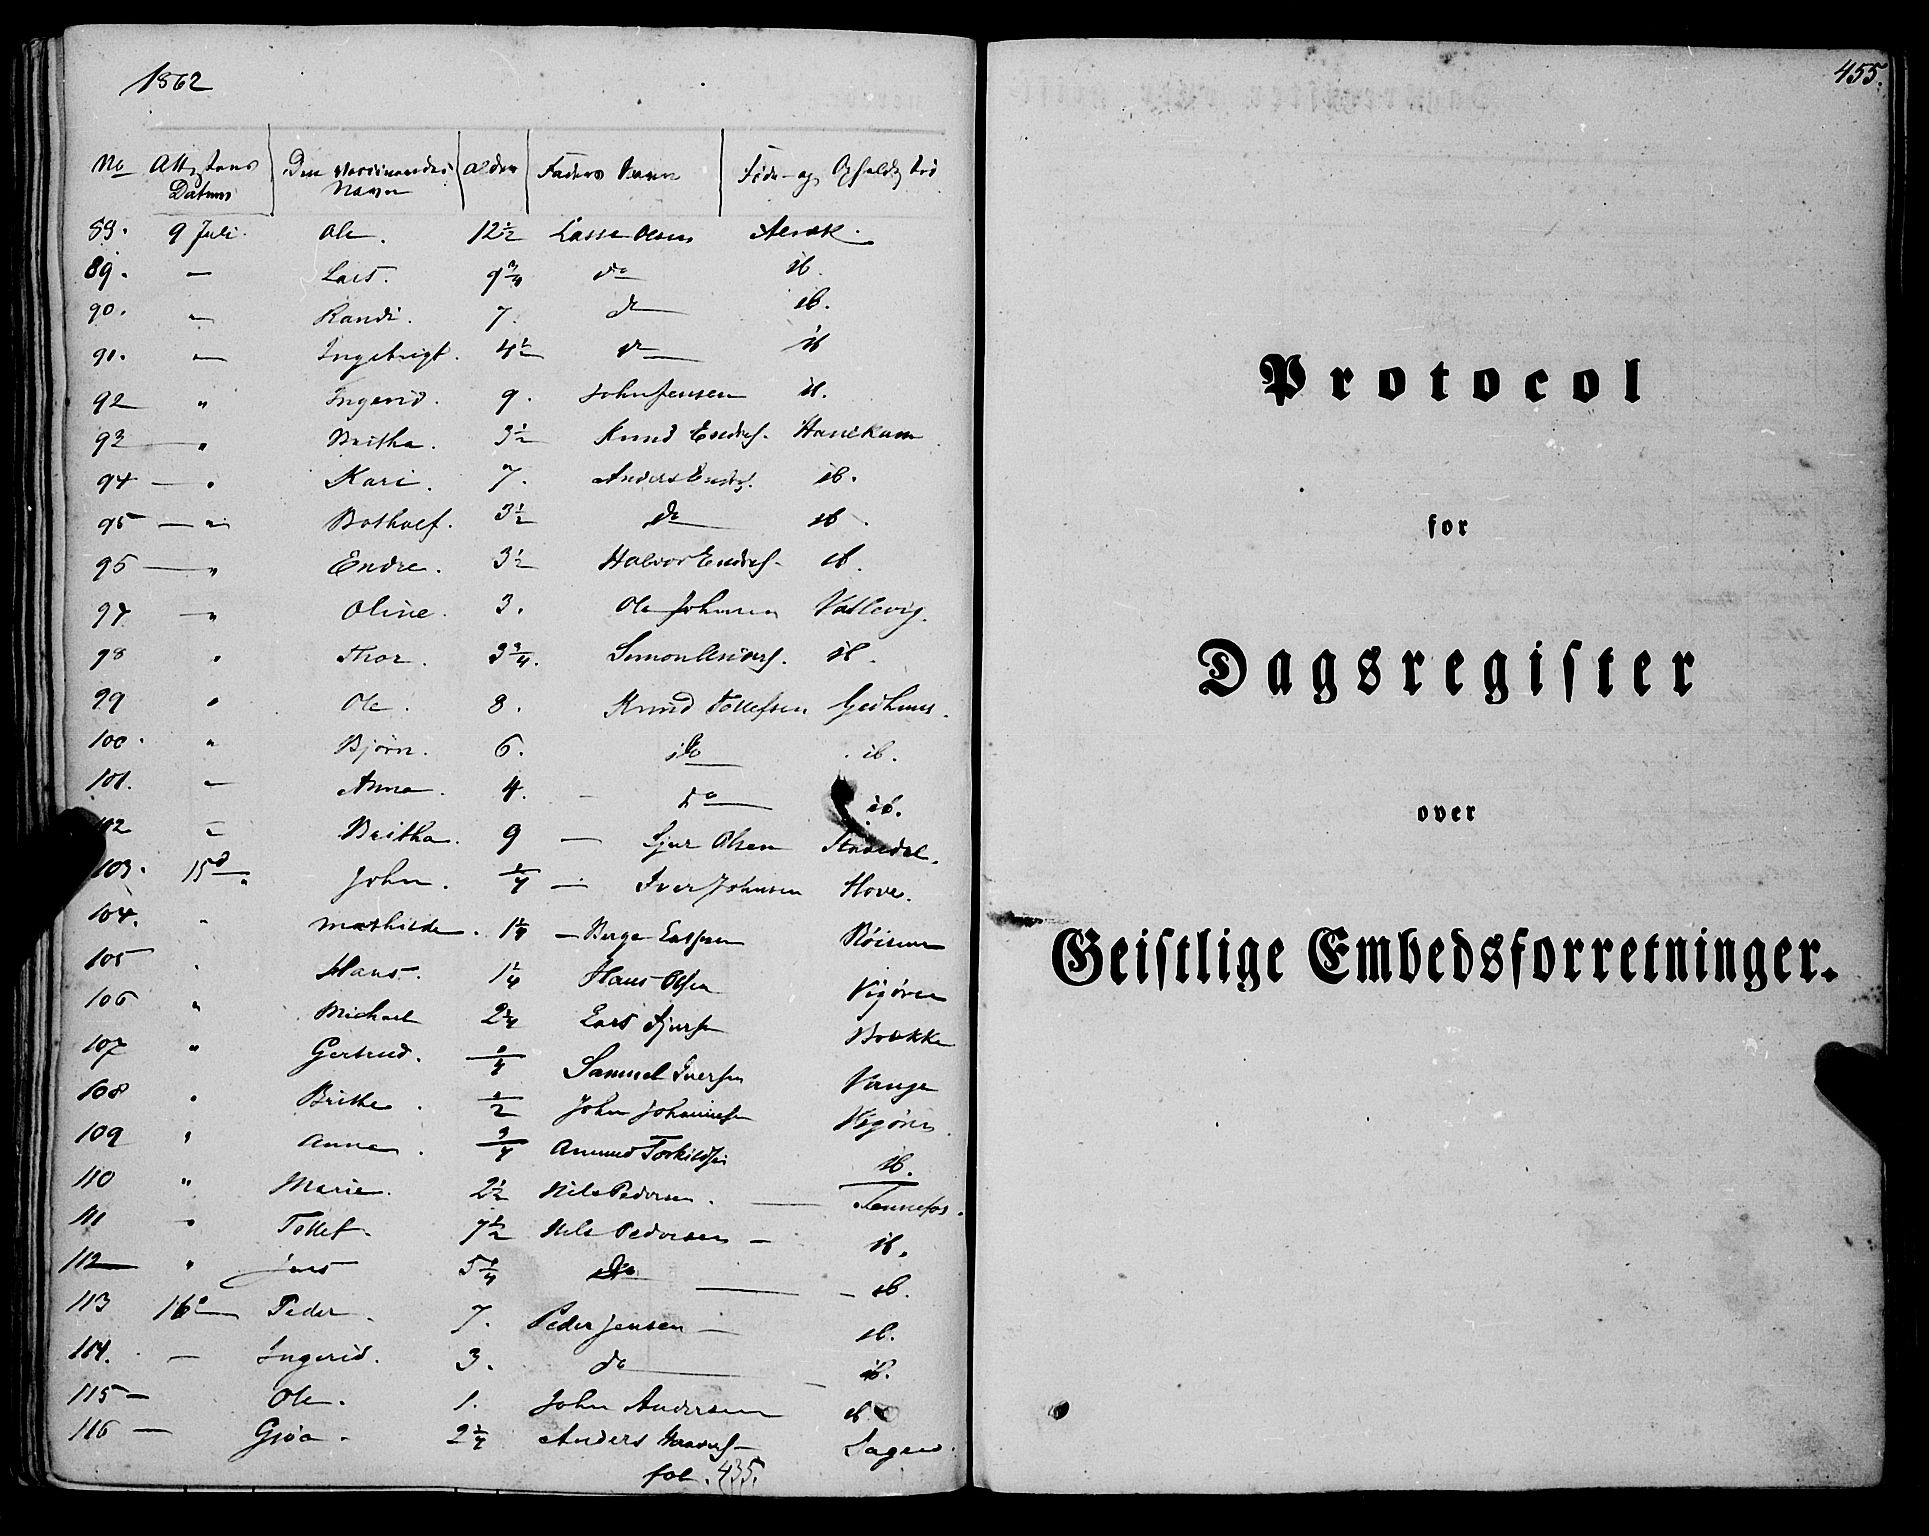 1862
No Attestens Datum Den Vaccineredes Navn Alder Faders Navn Føde- og Opholds Sted
89. 9 Juli. Ole. 12½ Lasse Olsen
89. — Lars. 9¾ do ib.
90. — Randi. 7. do ib.
91. — Ingebrigt. 4½ do ib
92 " Ingerid. 9. John Jensen ib.
93 " Britha. 3½ Knud Endres.
94 — " Kari. 7. Anders Endres. ib.
95 — " Botholf. 3½ do ib.
96 — " Endre. 3½ Halvor Endres. ib.
97 — " Oline. 3. Ole Johnsen Vatlevig.
98 " Thor. 3¾. Simon Anders. ib.
99 " Ole. 8. Knud Tollefsen Gjelhuus.
100. " Bjørn. 6. do ib.
101. — Anna. 4. do ib.
102 — Britha. 9 — Sjur Olsen
103. 15de John. ¼ — Iver Johnsen Hove.
104. " Mathilde. 1¼ — Berge
105 " Hans. 1¼ Hans Olsen Vigøren
106 " Michael 2¾ Lars Sjursen Brække
107 " Gertrud. ¼ Samuel Iversen Vange
108 " Brithe. ½ John Johannesen Vigøren.
109 " Anna. ¾ Amund Torkildsen ib.
110 " Marie. 2½ Nils Pedersen. — Tennefos.
111 " Tollef. 7½ Nils Pedersen — ib.
112 " Jens 5¼ do — ib.
113 16de Peder. 7. Peder Jensen — ib.
114. — Ingerid. 3. do ib.
115 — Ole. 1. John Andersen ib.
116 — Gjøa. 2¼ Anders
fol. 435.
455.
Protocol
for
Dagsregister
over
Geistlige Embedsforretninger.